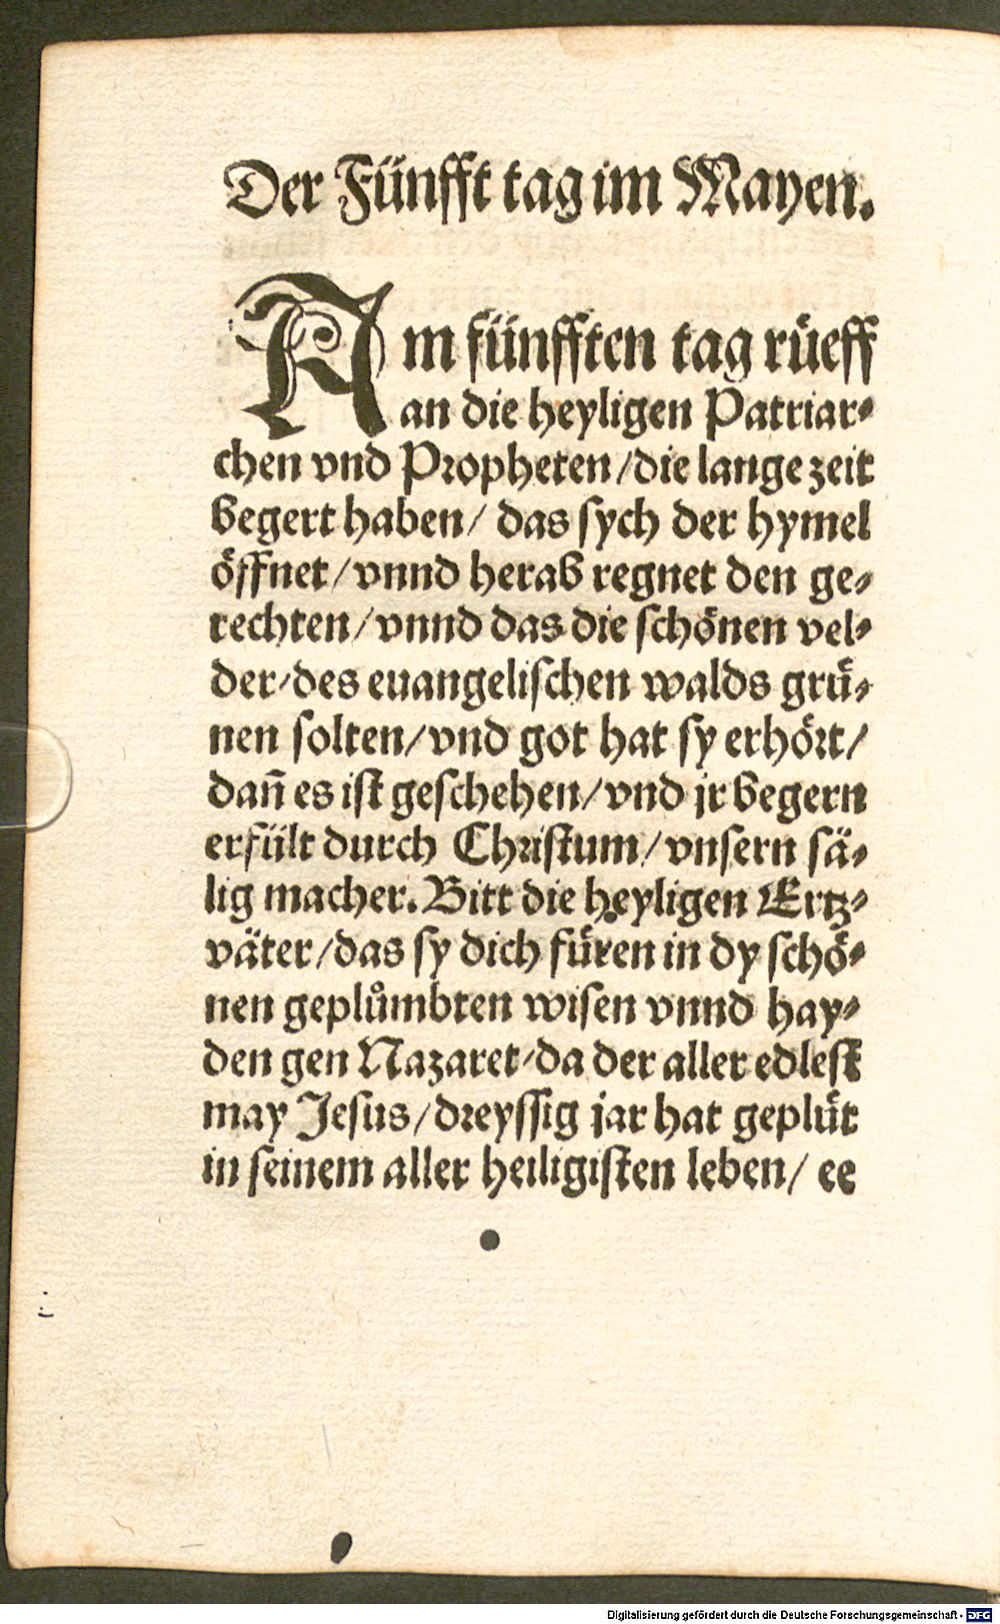 Der Fünfft tag im Mayen.
Am fünfften tag rüeff
an die heyligen Patriar⸗
chen vnd Propheten/die lange zeit
begert haben/ das sych der hymel
öffnet/vnnd herab regnet den ge⸗
rechten/vnnd das die schönen vel⸗
der/des euangelischen walds grü⸗
nen solten/vnd got hat sy erhört/
dañ es ist geschehen/vnd jr begern
erfült durch Christum/vnsern sä⸗
lig macher. Bitt die heyligen Ertz⸗
väter/das sy dich füren in dy schö⸗
nen geplůmbten wisen vnnd hay⸗
den gen Nazaret/da der aller edlest
may Jesus/dreyssig jar hat geplüt
in seinem aller heiligisten leben/ ee
Digitalisierung gefördert durch die Deutsche Forschungsgemeinschaft - DFG